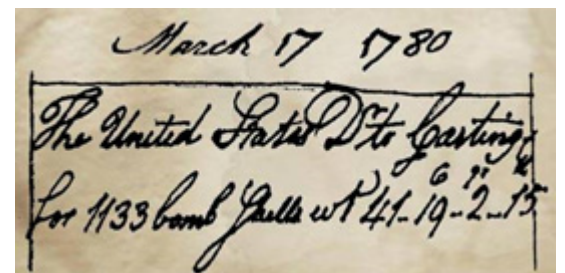 March 17 1780
The United States Dr to Castings
C qr lb
for 1133 bomb Shells wt 41-19-2-15